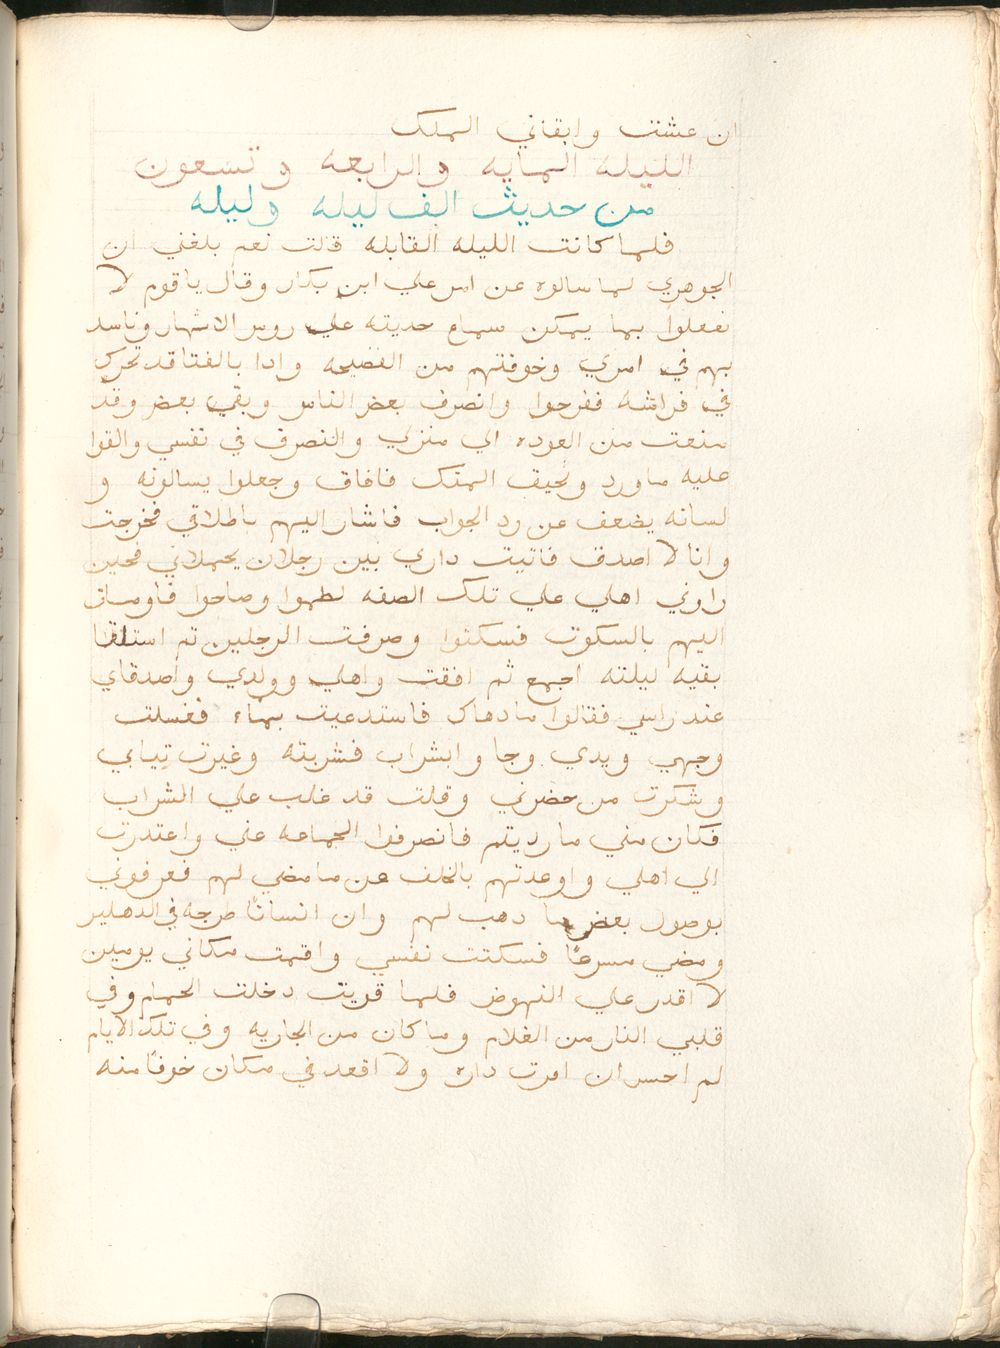 ان عشت وابقاني الملك
الليله المايه والرابعه وتسعون
من حديث الف ليله وليله
فلما كانت الليله القابله قالت نعم بلغني ان
الجوهري لما سالوه عن امر علي ابن بكار وقال ياقوم لا
تفعلوا بما يمكن سماع حديثه علي روس الاشهار وناسد
بهم في امري وخوفتهم من الفضيحه وادا بالفتا قد تحرك
في فراشه ففرحوا وانصرف بعض الناس وبقي بعض وقد
منعت من العوده الي منزلي والنصرف في نفسي والقوا
عليه ماورد وسحيق المسك فافاق وجعلوا يسالونه و
لسانه يضعف عن رد الجواب فاشار اليهم باطلاقي فخرجت
وانا لا اصدق فاتيت داري بين رجلان يحملاني فحين
راوني اهلي علي تلك الصفه لطموا وصاحوا فاومات
اليهم بالسكوت فسكتوا وصرفت الرجلين تم استلقا
بقيه ليلته اجمع ثم افقت واهلي وولدي واصدقاي
عند راسي فقالوا مادهاك فاستدعيت بماء فغسلت
وجهي ويدي وجا وابشراب فشربته وغيرت تيابي
وشكرت من حضرني وقلت قد غلب علي الشراب
فكان مني ما رديتم فانصرفوا الجماعه عني واعتدرت
الي اهلي واوعدتهم بالخلف عن ما مضي لهم فعرفوني
بوصول بعض ما دهب لهم وان انسانا طرحه في الدهلير
ومضي مسرعا فسكتت نفسي واقمت مكاني يومين
لا اقدر علي النهوض فلما قويت دخلت الحمام وفي
قلبي النار من الغلام وماكان من الجاريه وفي تلك الايام
لم احسر ان اقرب داره ولا اقعد في مكان خوفا منه